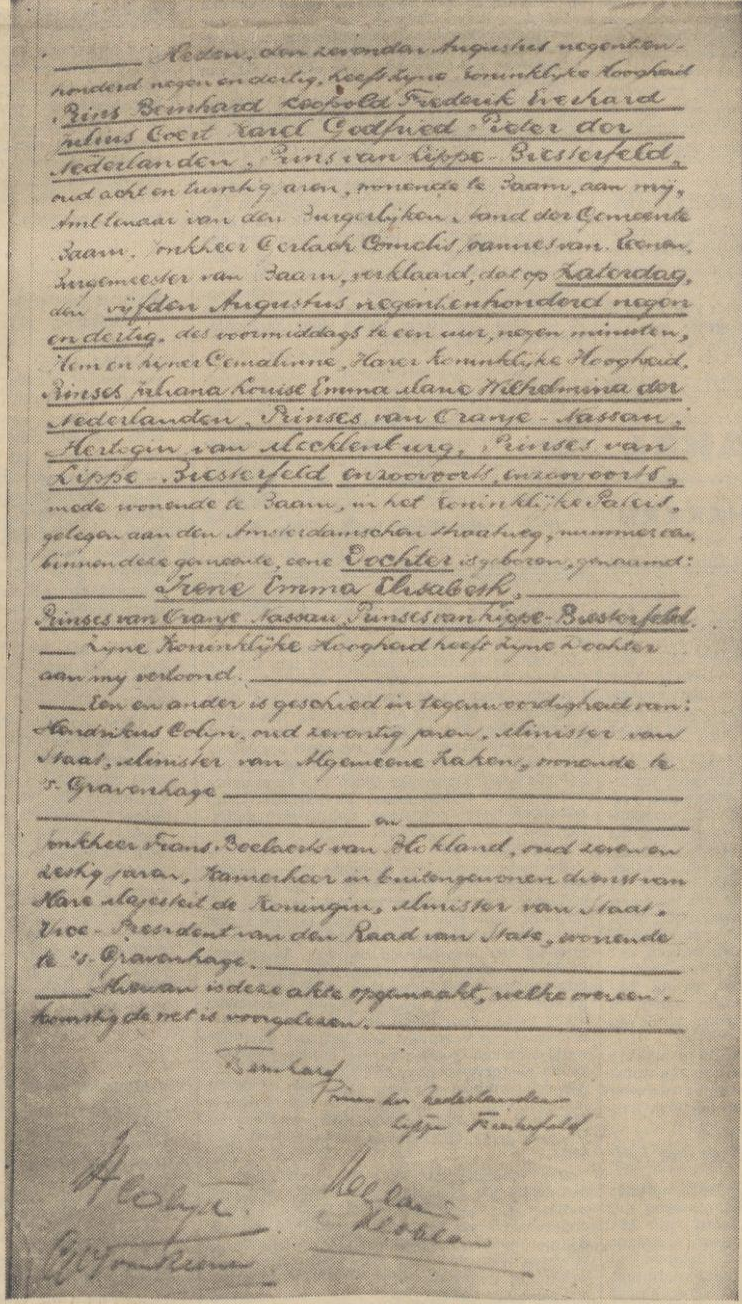 Heden, den zevenden Augustus negentien-
honderd negen en dertig, heeft Zyne Koninklijke Hoogheid
Prins Bernhard Leopold Frederik Everhard
Julius Coert Karel Godfried Pieter der
Nederlanden, Prins van Lippe-Biesterfeld,
oud acht en twintig jaren, wonende te Baarn, aan my,
Ambtenaar van den Burgerlijken Stand der Gemeente
Baarn, Jonkheer Gerlach Cornelis Joannes van Reenen,
Burgemeester van Baarn, verklaard, dat op Zaterdag,
den vijfden Augustus negentienhonderd negen
en dertig, des voormiddags te een uur, negen minuten,
Hem en Zyner Gemalinne, Harer Koninklijke Hoogheid,
Prinses Juliana Louise Emma Marie Wilhelmina der
Nederlanden, Prinses van Oranje-Nassau,
Hertogin van Mecklenburg, Prinses van
Lippe-Biesterfeld enzoovoorts, enzoovoorts,
mede wonende te Baarn, in het Koninklijke Paleis,
gelegen aan den Amsterdamschen straatweg, nummer een,
binnen deze gemeente, eene Dochter is geboren, genaamd:
Irene Emma Elisabeth,
Prinses van Oranje Nassau, Prinses van Lippe-Biesterfeld.
Zyne Koninklijke Hoogheid heeft Zyne Dochter
aan my vertoond.
Een en ander is geschied in tegenwoordigheid van:
Hendrikus Colyn, oud zeventig jaren, Minister van
Staat, Minister van Algemeene Zaken, wonende te
's-Gravenhage
en
Jonkheer Frans Beelaerts van Blokland, oud zeven en
zestig jaren, Kamerheer in buitengewonen dienst van
Hare Majesteit de Koningin, Minister van Staat,
Vice-President van den Raad van State, wonende
te 's-Gravenhage.
Hiervan is deze akte opgemaakt, welke overeen-
komstig de wet is voorgelezen.
Bernhard
Prins der Nederlanden
Lippe Biesterfeld
HColijn
Beelaerts
Blokland
GCJvanReenen